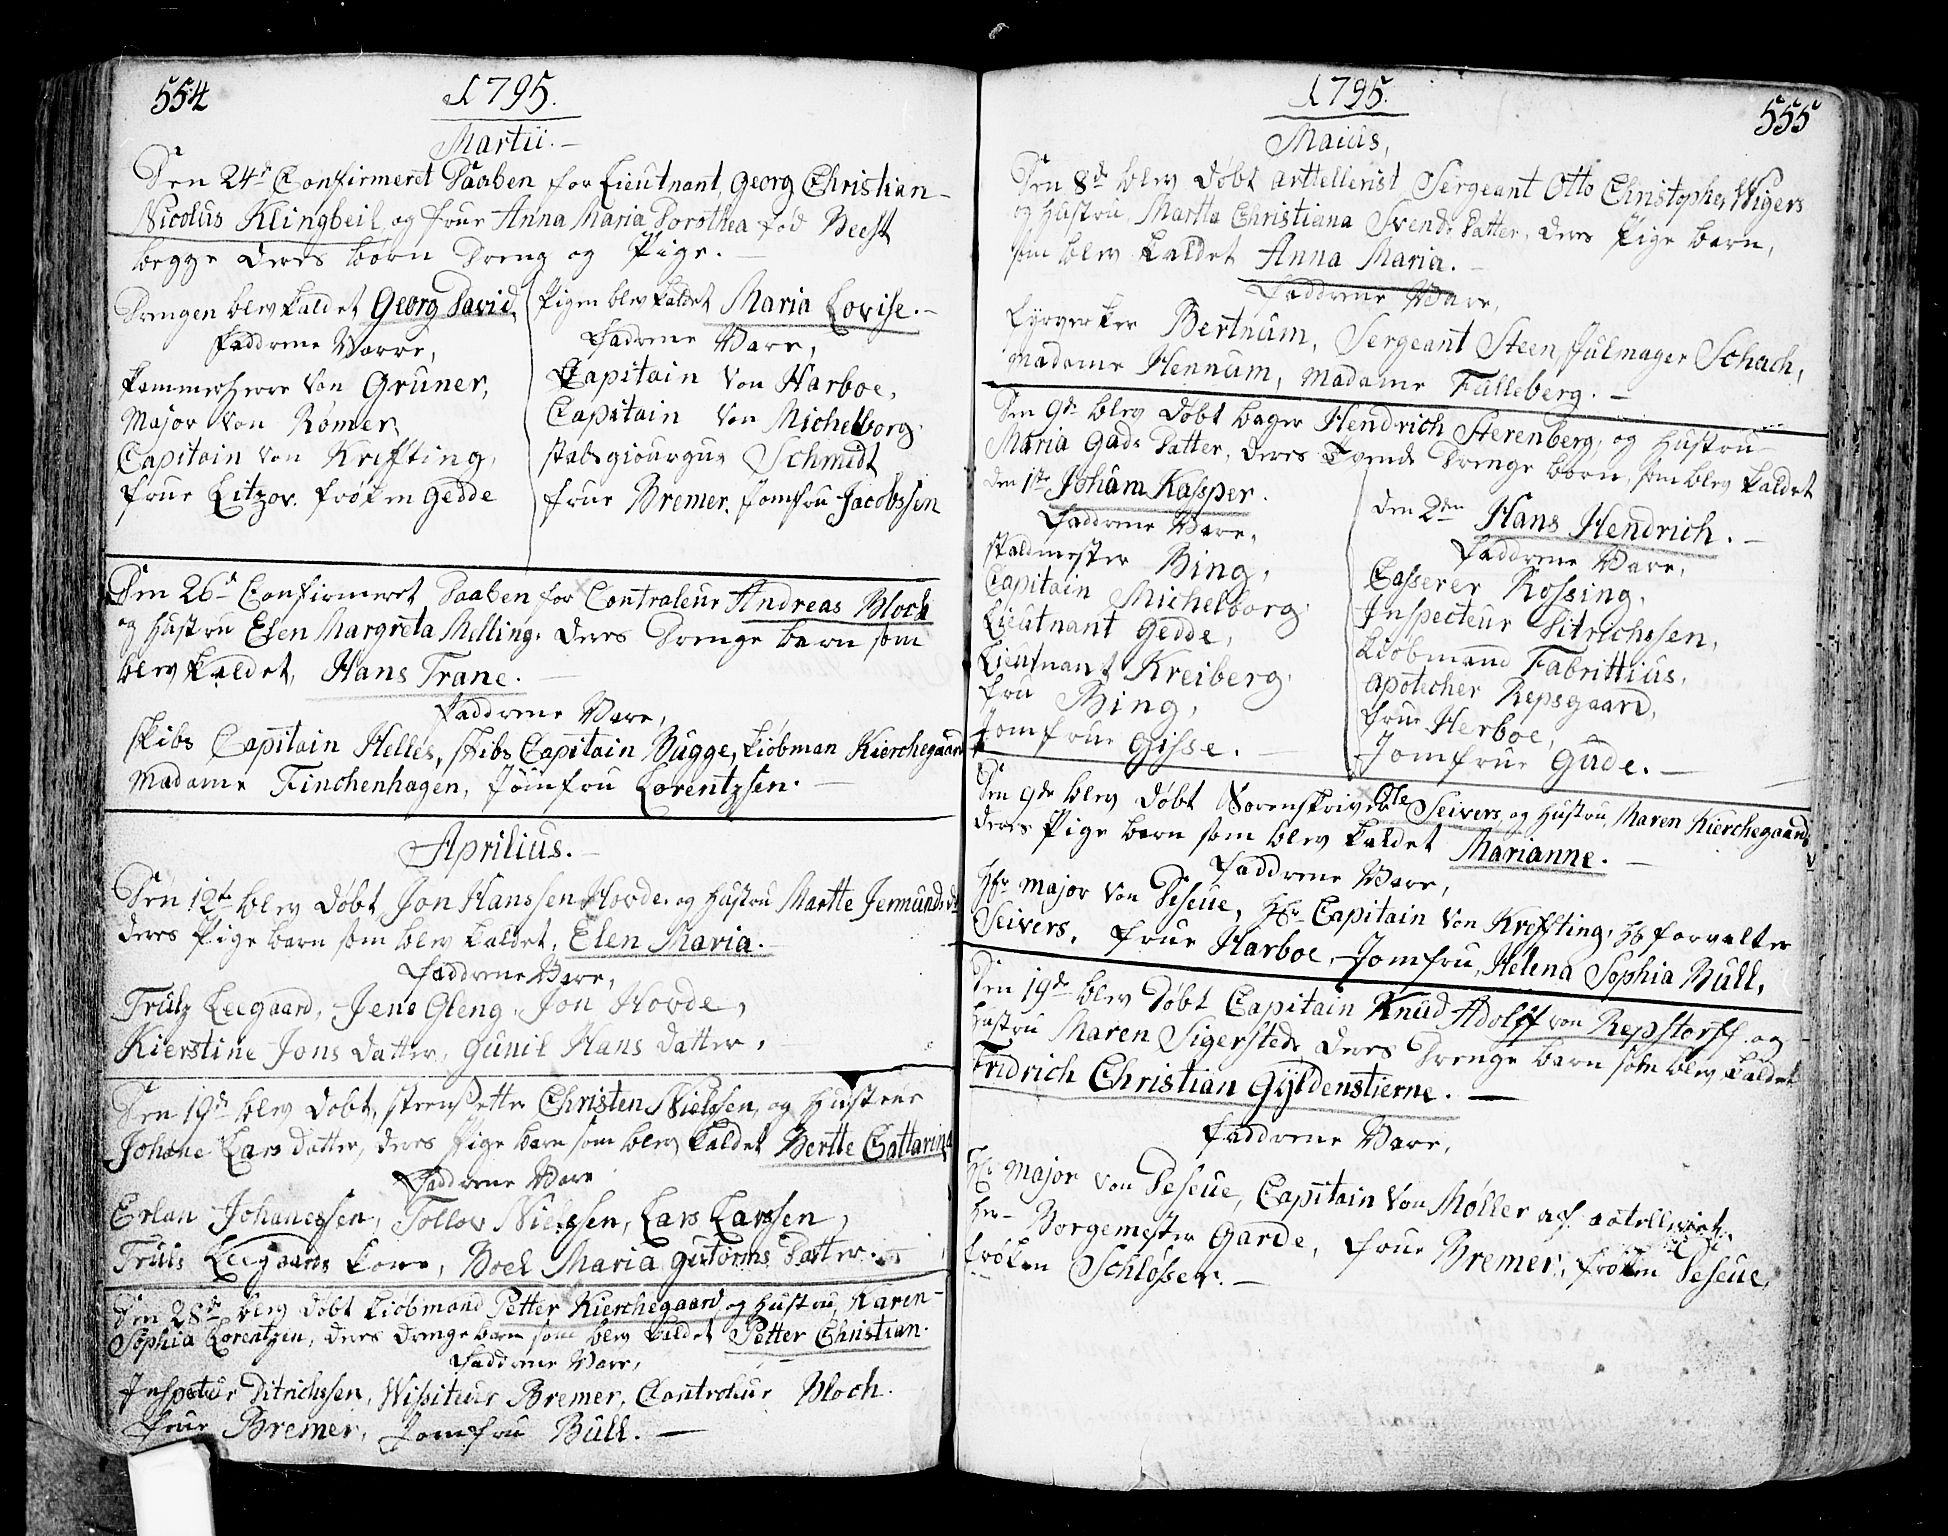 554
1795.
Martii.
Den 24de Confirmeret Daaben for Lieutnant Georg Christian
Nicolus Klingbeil, og frue Anna Maria Dorothea fød Beest
begge deres børn Dreng og Pige.
Drengen blev kaldet Georg David,
Faddrene Varre,
Kammerherre Von Gruner,
Major Von Rømer,
Capitain Von Kreffting,
frue Litzov. frøken Gedde
Pigen blev kaldet Maria Lovise.
Fadrene Vare,
Capitain Von Harboe,
Capitain Von Michelborg.
stabsgiourgus Schmidt
frue Bremer. Jomfru Jacobssen
Den 26de Confirmeret Daaben for Contraleur Andreas Bloch
og Hustru Elen Margreta Melling, deres Drenge barn som
blev kaldet, Hans Trane.
Faddrene Vare,
skibs Capitain Helles, skibs Capitain Bugge, kiøbman Kierchegaard
Madame Finchenhagen, Jomfru Lorentzsen.
Aprilius.
Den 12te blev Døbt Jon Hanssen Hovde. og Hustru Martte Jermunds dr
deres Pige barn som blev kaldet, Elen Maria.
Faddrene Vare,
Trulz Leegaard, Jens Gleng, Jon Hovde,
Kierstine Jons datter, Gunil Hans datter,
Den 19de blev Døbt, steensetter Christen Nielssen, og Hustrue
Johane Lars datter, deres Pige barn som blev kaldet Bertte Cattarina
Faddrene Vare
Erlan Johanessen, Tollov Nielssen, Lars Larssen,
Truls Leegaards kone, Boel Maria Gutorms Datter.
Den 28de blev Døbt kiøbmand Petter Kierchegaard og Hustru, Karen
Sophia Lorentzen, deres drenge barn som blev kaldet Petter Christian.
Faddrene Vare,
Inspetur Ditrichssen, Wissiteur Bremer, Controleur Bloch.
frue Bremer, Jomfru Bull.
1795.
555
Maius,
Den 8de blev Døbt arttellerist Sergeant Otto Christopher Wigers
og Hustru, Martta Christiana Svends Datter, deres Pige barn,
som blev kaldet Anna Maria.
Faddrene Vare,
fyrverker Bertnum, Sergeant Steen, Julmager Schach,
Madame Hennum, Madame Falleberg.
Den 9de blev Døbt bager Hendrich Sterenberg, og Hustru
Maria Gads Datter, deres Tvende Drenge børn, som blev kaldet
den 1ste Joham Kasper.
Faddrene Vare,
staldmester Bing,
Capitain Michelborg,
Lieutnant Gedde,
Lieutnant Kreiberg,
fru Bing,
Jomfrue Gisse.
den 2den Hans Hendrich.
Faddrene Vare,
Casserer Rossing,
Inspecteur Ditrichssen,
kiøbmand Fabrittius,
apotecher Repsgaard,
frue Herboe,
Jomfrue Gude.
Den 9de blev Døbt Sorenskriver Ole Seivers, og Hustru, Maren Kierchegaard,
deres Pige barn som blev kaldet Marianne.
Faddrene Vare,
Hr Major Von Peseue, Hr Capitain Von Kreffting, Hr forvalter
Seivers, frue Harboe, Jomfru, Helena Sophia Bull,
Den 19de blev Døbt Capitain Knud Adolff von Repstorff og
Hustru Maren Sigersteds, deres Drenge barn som blev kaldet
Fridrich Christian Gyldenstierne.
Faddrene Vare,
Hr Major Von Peseue, Capitain Von Møller af
Hr Borgemester Garde, frue Bremer, frøken Peseue,
frøken Schlösser.